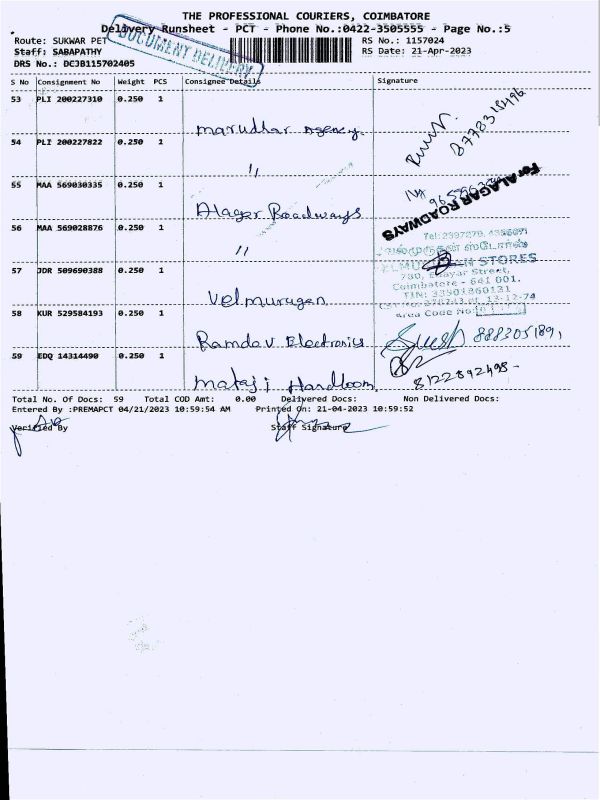 THE PROFESSIONAL COURIERS, COIMBATORE
Delivery Runsheet - PCT - Phone No.:0422-3505555 - Page No.:5
Route: SUKWAR PET
RS No.: 1157024
Staff: SABAPATHY
RS Date: 21-Apr-2023
DRS No.: DCJB115702405
DOCUMENT DELIVERY
S No Consignment No Weight PCS Consignee Details Signature
53 PLI 200227310 0.250 1
Marudhar Agency.
54 PLI 200227822 0.250 1
"
8778318496
55 MAA 569030335 0.250 1
Alager Roadways
For ALAGAR ROADWAYS
56 MAA 569028876 0.250 1
"
Tel: 2397279, 4386071
வேல்முருகன் ஸ்டோர்ஸ்
VELMURUGAN STORES
780, Edayar Street,
Coimbatore - 641 001.
TIN: 33901860131
Area Code No:
57 JDR 509690388 0.250 1
Velmurugan
58 KUR 529584193 0.250 1
Ramdev Electronics
8883051891
59 EDQ 14314490 0.250 1
Mataji Handloom
8122892498-
Total No. Of Docs: 59 Total COD Amt: 0.00 Delivered Docs: Non Delivered Docs:
Entered By :PREMAPCT 04/21/2023 10:59:54 AM Printed On: 21-04-2023 10:59:52
Verified By Staff Signature